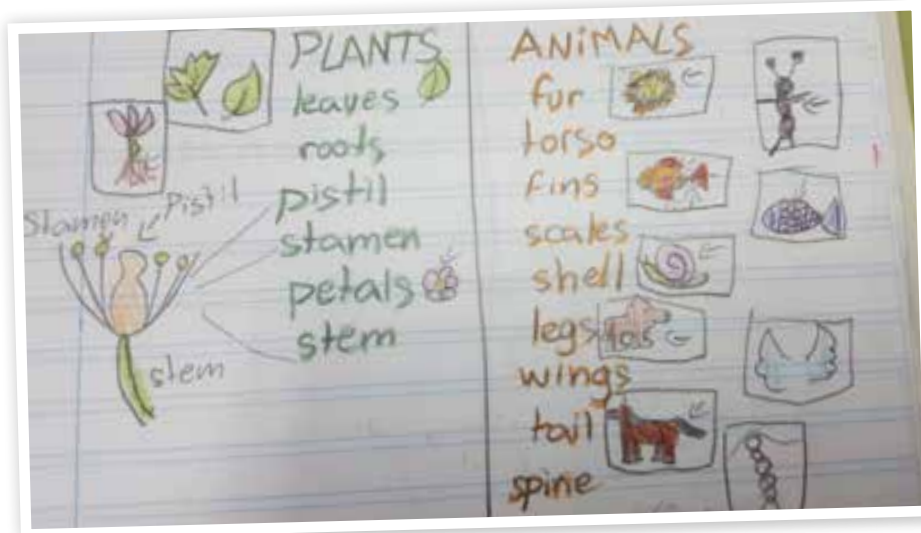 PLANTS
leaves
roots
pistil
stamen
petals
stem
Stamen
Pistil
stem
ANiMALS
fur
torso
fins
scales
shell
legs
wings
tail
spine